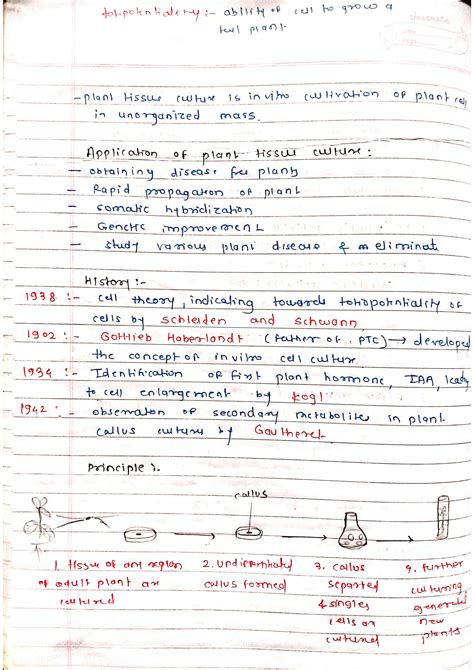 totipotentiality :- ability of cell to grow a
full plant
- plant tissue culture is invitro cultivation of plant cell
in unorganized mass.
Application of plant tissue culture:
- obtaining disease free plants
- Rapid propagation of plant
- somatic hybridization
- Genetic improvement
- study various plant disease & eliminate
History :-
1938 :- cell theory, indicating towards totipotentiality of
cells by schleiden and schwann,
1902 :- Gottlieb Haberlandt (father of PTC) → developed
the concept of invitro cell culture.
1934 :- Identification of first plant hormone, IAA,
to cell enlargement by kogl
1942 :- observation of secondary metabolite in plant
callus culture by Gautheret
Principle :-
callus
1. tissue of any region
of adult plant are
cultured
2. undifferentiated
callus formed
3. callus
separated
& singles
cells are
cultured
4. further
culturing
generates
new
plants